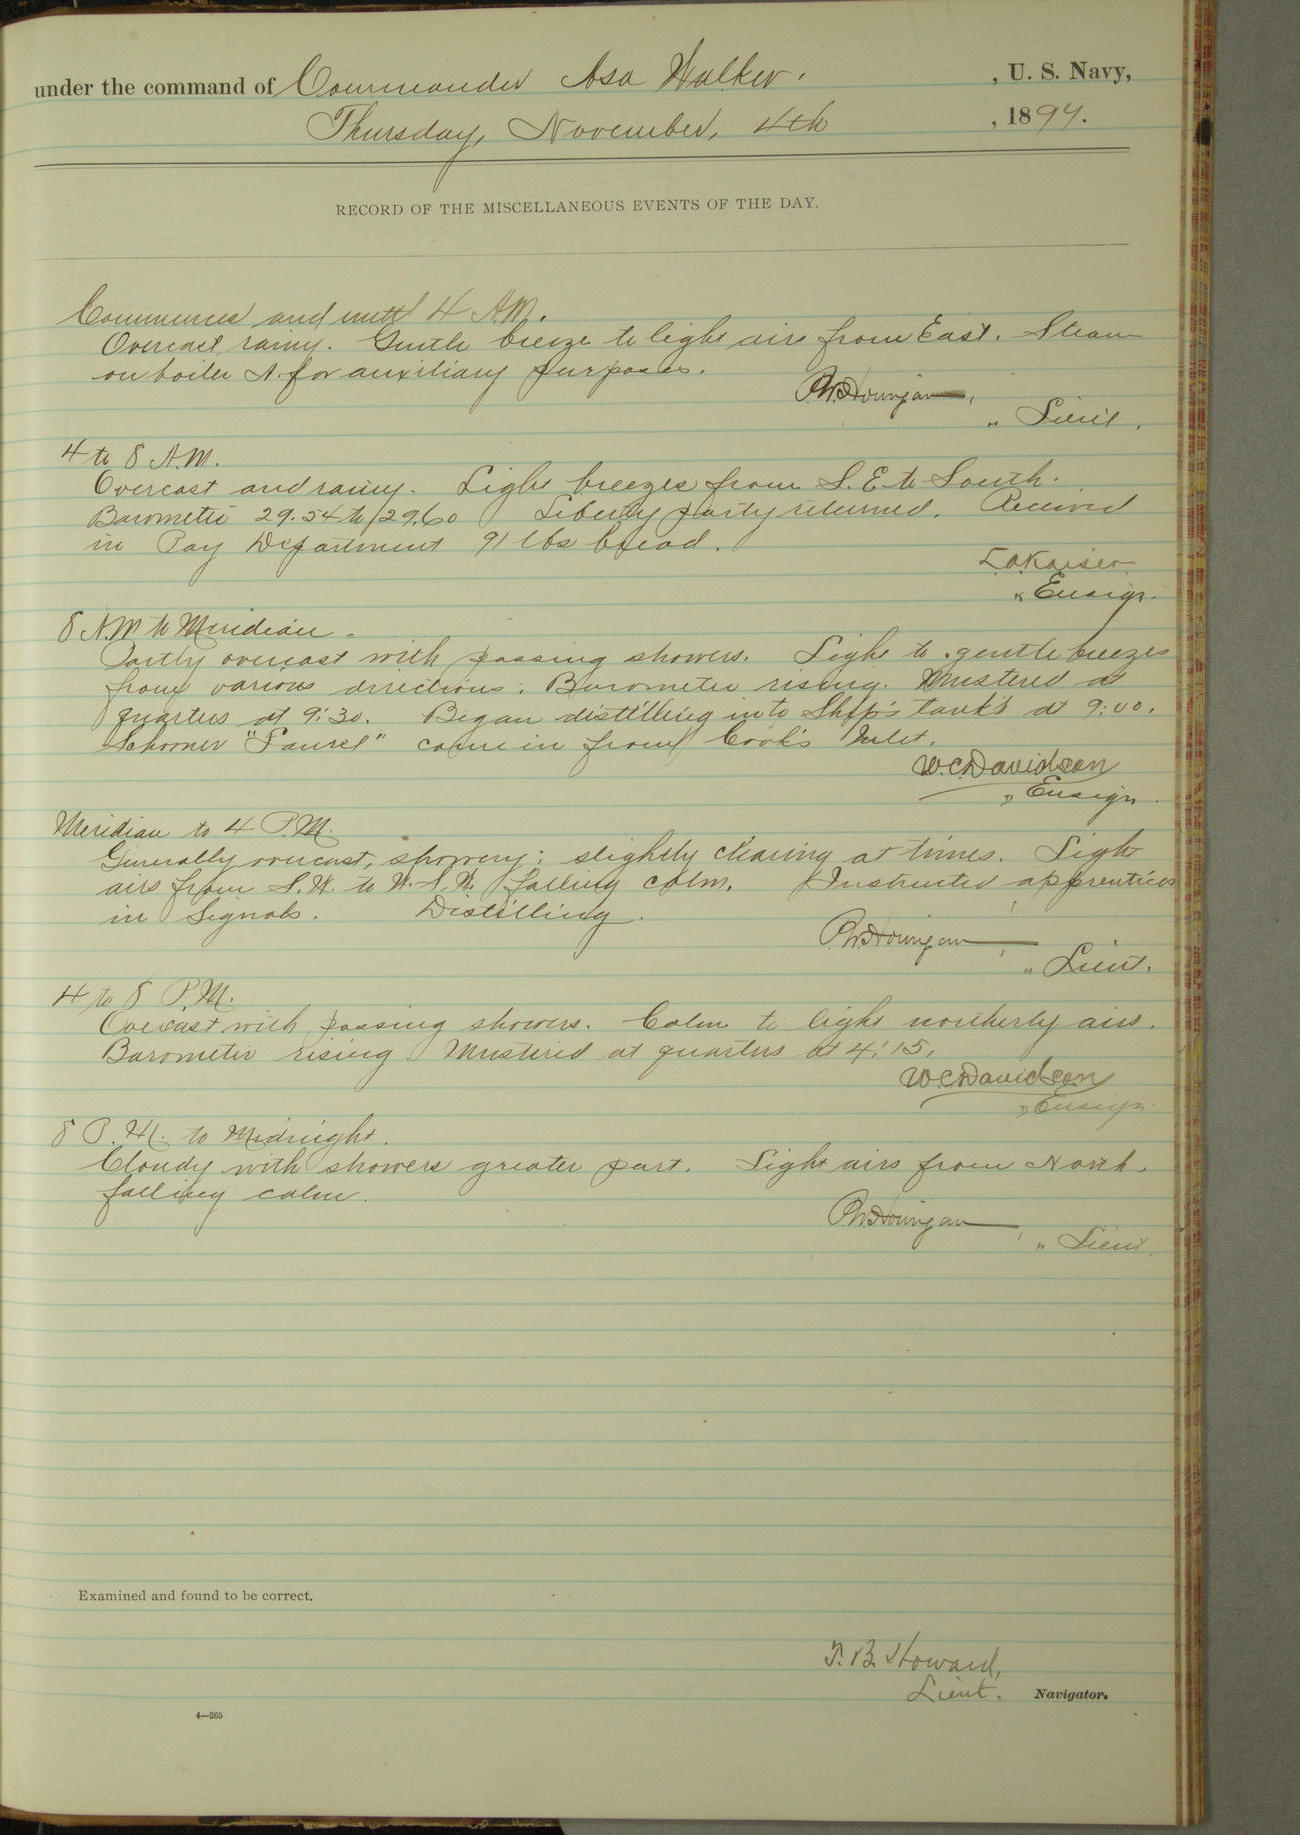 under the command of Commander Asa Walker. , U. S. Navy,
Thursday, November, 4th , 1897.
RECORD OF THE MISCELLANEOUS EVENTS OF THE DAY.
Commences and until 4 A.M.
Overcast rainy. Gentle breeze to light airs from East. Steam
on boiler A. for auxiliary purposes.
P.W. Hourigan,
" Lieut.
4 to 8 A.M.
Overcast and rainy. Light breezes from S.E. to South.
Barometer 29.54 to 29.60 Liberty party returned. Received
in Pay Department 91 lbs bread.
L.A. Kaiser
" Ensign.
8 A.M. to Meridian.
Partly overcast with passing showers. Light to gentle breezes
from various directions. Barometer rising. Mustered at
quarters at 9:30. Began distilling into Ship's tanks at 9:00.
Schooner "Laurel" came in from Cook's Inlet.
W.C. Davidson
" Ensign.
Meridian to 4 P.M.
Generally overcast, showery; slightly clearing at times. Light
airs from S.W. to W.S.W. falling calm. Instructed apprentices
in Signals. Distilling.
P.W. Hourigan,
" Lieut.
4 to 8 P.M.
Overcast with passing showers. Calm to light northerly airs.
Barometer rising. Mustered at quarters at 4:15.
W.C. Davidson
" Ensign
8 P.M. to Midnight.
Cloudy with showers greater part. Light airs from North.
falling calm.
P.W. Hourigan,
" Lieut.
Examined and found to be correct.
T. B. Howard,
Lieut. Navigator.
4—265